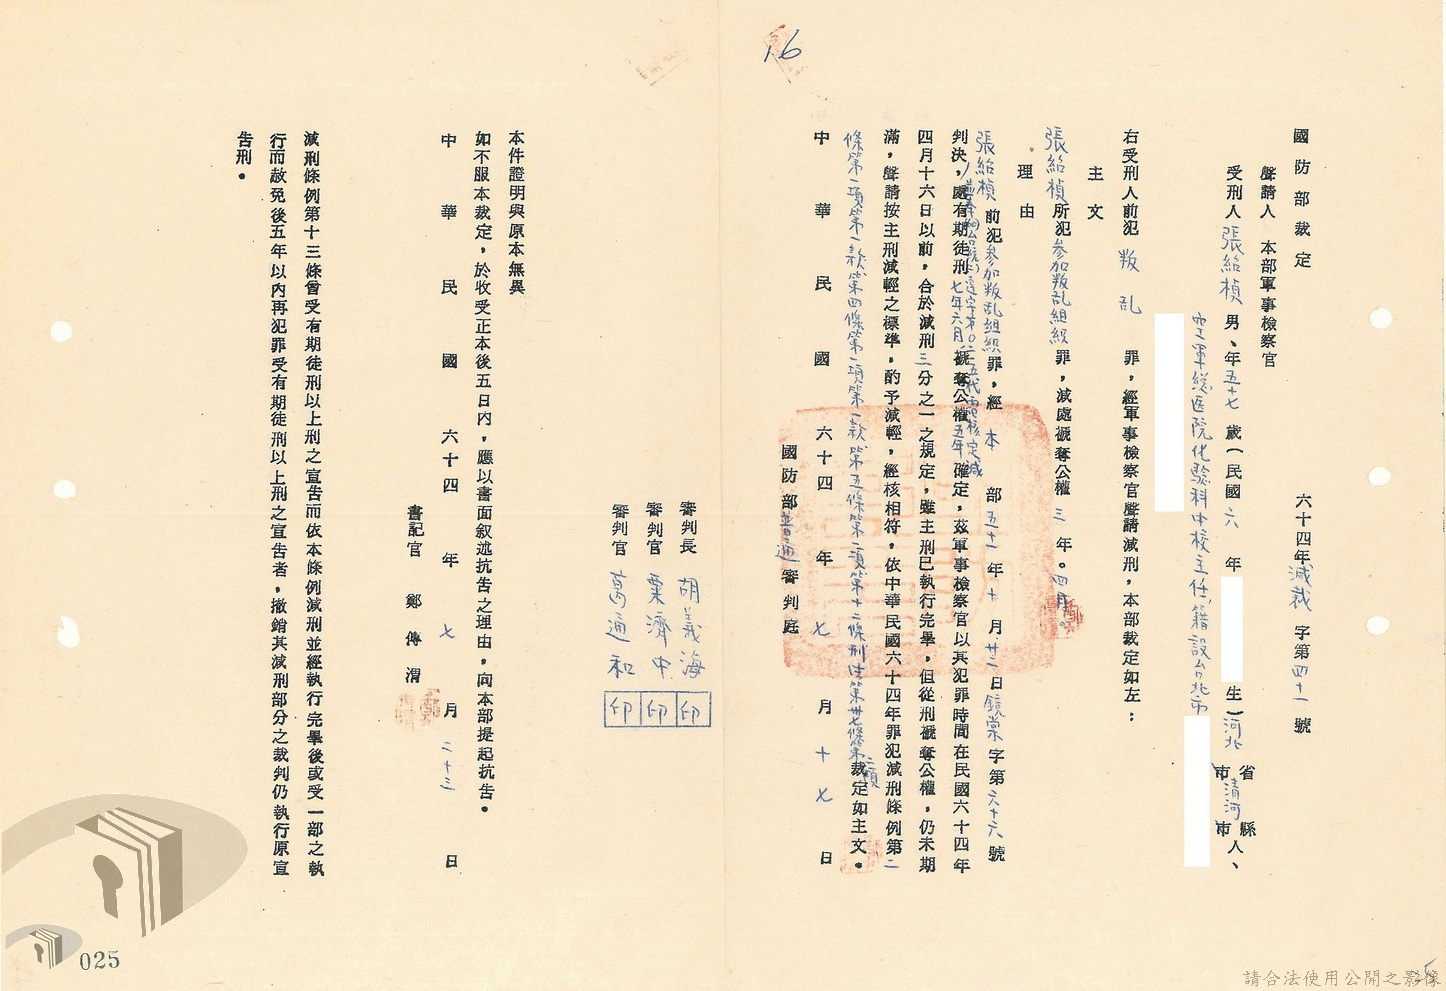 16
國防部裁定
六十四年減裁字第四十一號
聲請人 本部軍事檢察官
受刑人 張紹楨 男、年五十七歲(民國六年 生)河北省市清河縣市人、
空軍總医院化驗科中校主任,籍設台北市
右受刑人前犯 叛乱 罪,經軍事檢察官聲請減刑,本部裁定如左:
主文
張紹楨所犯參加叛乱組織罪,減處褫奪公權三年。四月。
理由
張紹楨前犯參加叛乱組織罪,經 本 部五十一年十月廿二日鏡棠字第六十六號
判決,處有期徒刑七年六月褫奪公權五年確定,茲軍事檢察官以其犯罪時間在民國六十四年
四月十六日以前,合於減刑三分之一之規定,雖主刑已執行完畢,但從刑褫奪公權,仍未期
滿,聲請按主刑減輕之標準,酌予減輕,經核相符,依中華民國六十四年罪犯減刑條例第二
條第二項第一款第四條第一項第一款第五條第二項第十二條刑法第卅七條第二項裁定如主文。
中華民國六十四年七月十七日
國防部普通審判庭
審判長 胡義海 印
審判官 粟濟中 印
審判官 萬通和 印
本件證明與原本無異
如不服本裁定,於收受正本後五日內,應以書面叙述抗告之理由,向本部提起抗告。
中華民國六十四年七月二十三日
書記官 鄭傳渭
減刑條例第十三條曾受有期徒刑以上刑之宣告而依本條例減刑並經執行完畢後或受一部之執
行而赦免後五年以內再犯罪受有期徒刑以上刑之宣告者,撤銷其減刑部分之裁判仍執行原宣
告刑。
025
請合法使用公開之影像